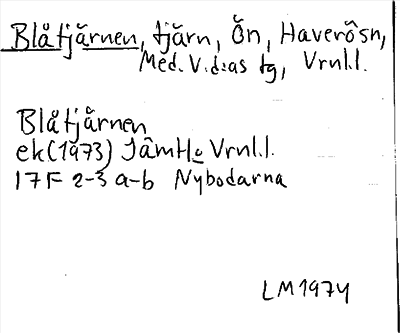 Blåtjärnen, tjärn, Ön, Haverösn,
Med. V.d:as tg, Vrnl.l.
Blåtjärnen
ek(1973) JämtL o Vrnl.l.
17F 2-3 a-b Nybodarna
LM1974